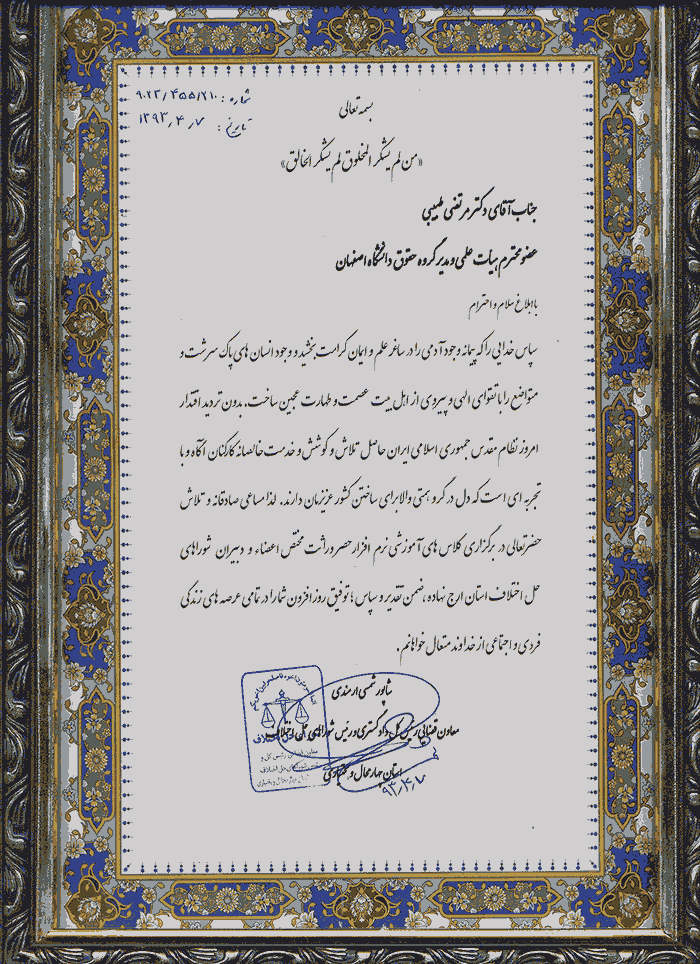 شماره: ۹۰۲۳/۴۵۵/۲۱۰
تاریخ: ۱۳۹۳/۴/۷
بسمه تعالی
«من لم یشکر المخلوق لم یشکر الخالق»
جناب آقای دکتر مرتضی طبیبی
عضو محترم هیات علمی و مدیر گروه حقوق دانشگاه اصفهان
با ابلاغ سلام و احترام
سپاس خدایی را که پیمانه وجود آدمی را در ساغر علم و ایمان کرامت بخشید و وجود انسان های پاک سرشت و
متواضع را با تقوای الهی و پیروی از اهل بیت عصمت و طهارت عجین ساخت. بدون تردید اقتدار
امروز نظام مقدس جمهوری اسلامی ایران حاصل تلاش و کوشش و خدمت خالصانه کارکنان آگاه و با
تجربه ای است که دل در گرو همتی والا برای ساختن کشور عزیزمان دارند. لذا مساعی صادقانه و تلاش
حضرتعالی در برگزاری کلاس های آموزشی نرم افزار حصر وراثت مختص اعضاء و دبیران شوراهای
حل اختلاف استان ارج نهاده، ضمن تقدیر و سپاس؛ توفیق روز افزون شما را در تمامی عرصه های زندگی
فردی و اجتماعی از خداوند متعال خواهانم.
شاپور شمسی ارمندی
معاون قضایی رئیس کل دادگستری و رئیس شوراهای حل اختلاف
استان چهارمحال و بختیاری
۹۳/۴/۷